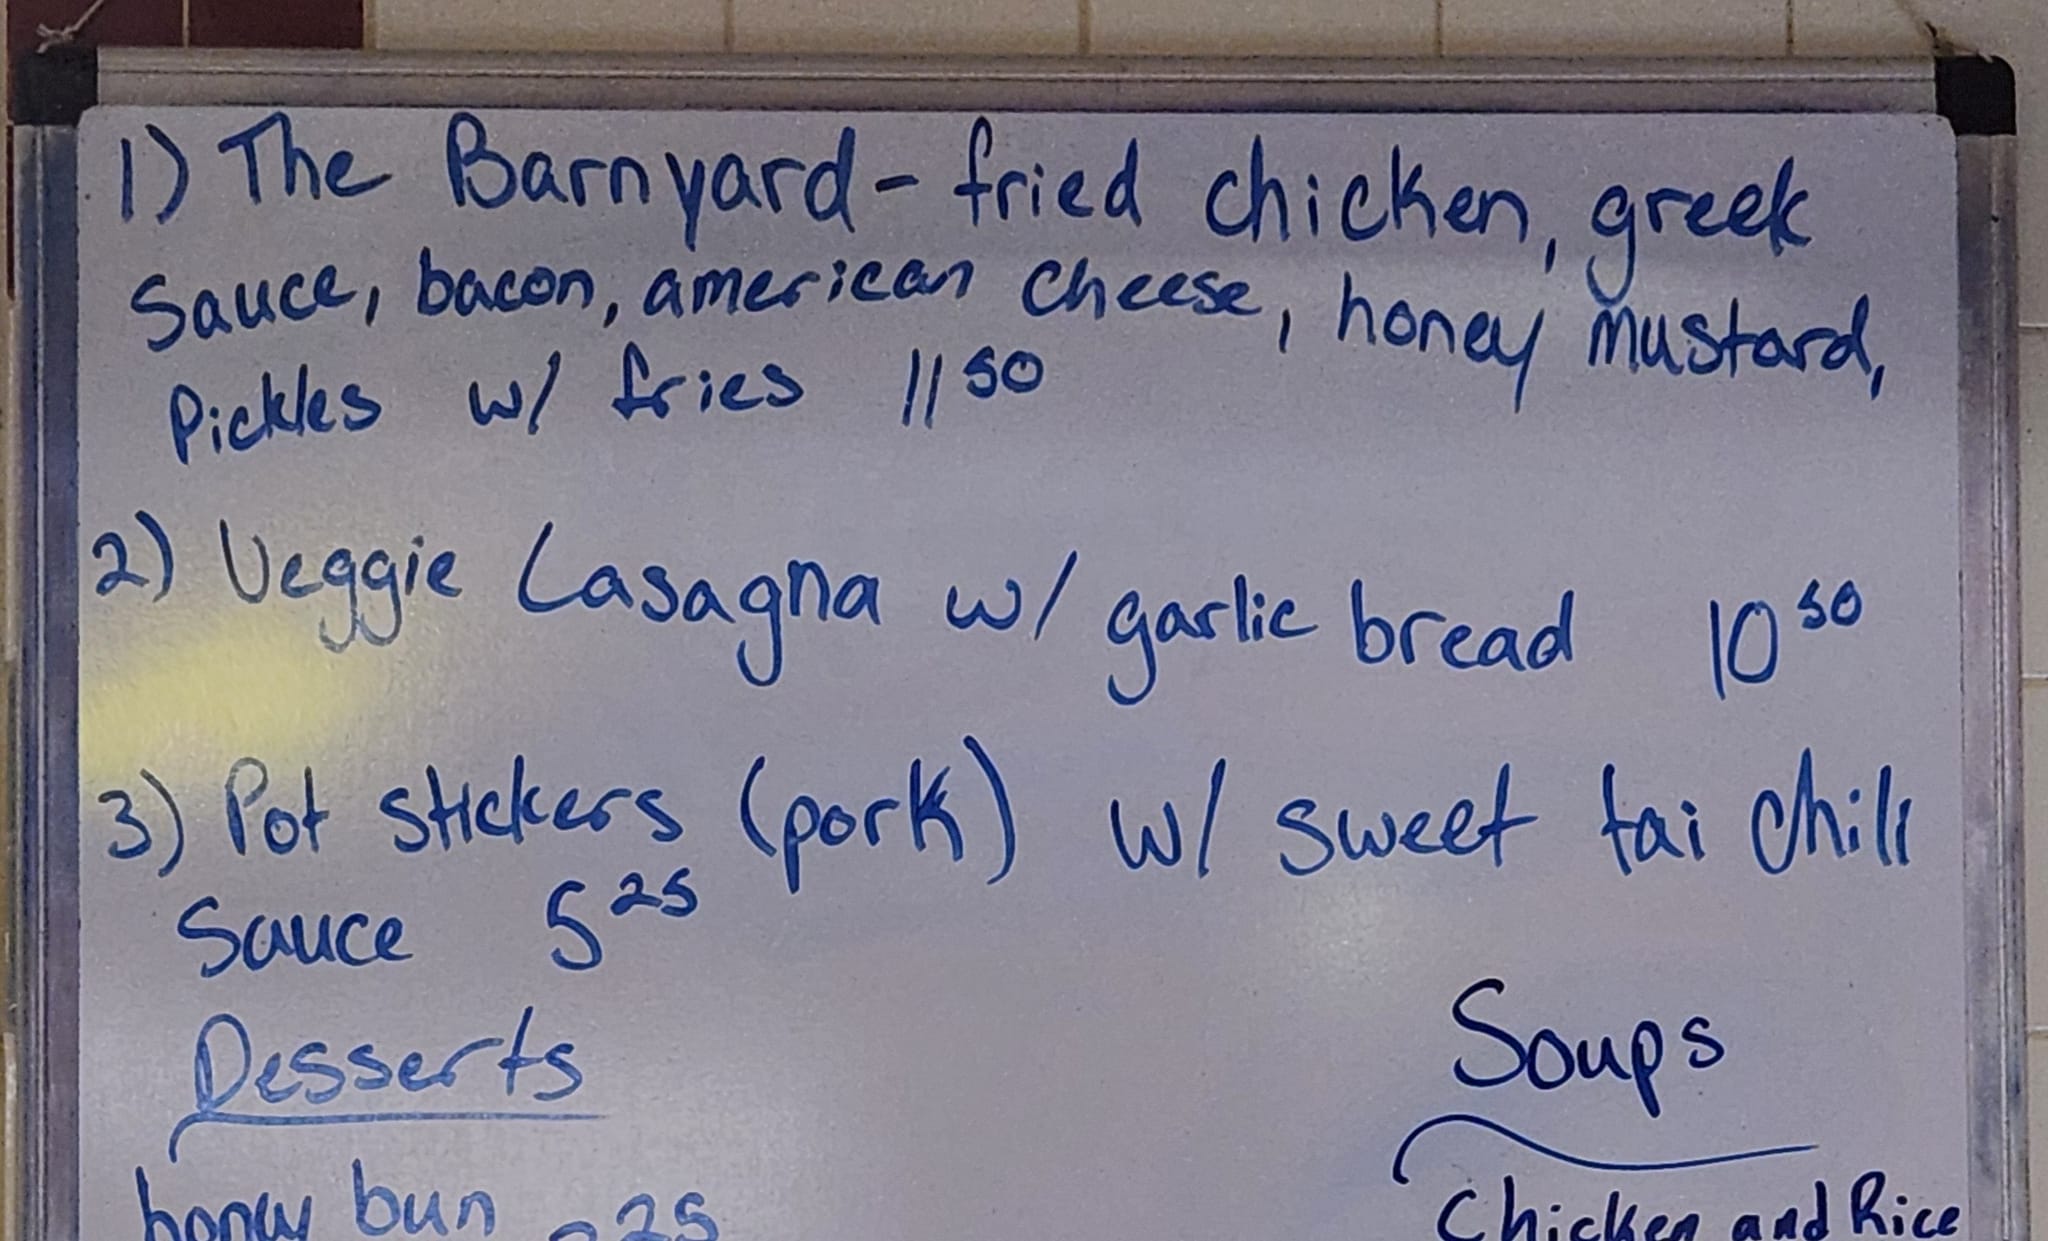 1) The Barnyard - fried chicken, greek
Sauce, bacon, american cheese, honey mustard,
Pickles w/ fries 11 50
2) Veggie Lasagna w/ garlic bread 10 50
3) Pot stickers (pork) w/ sweet tai chili
Sauce 5 25
Desserts
Soups
honey bun 25
Chicken and Rice